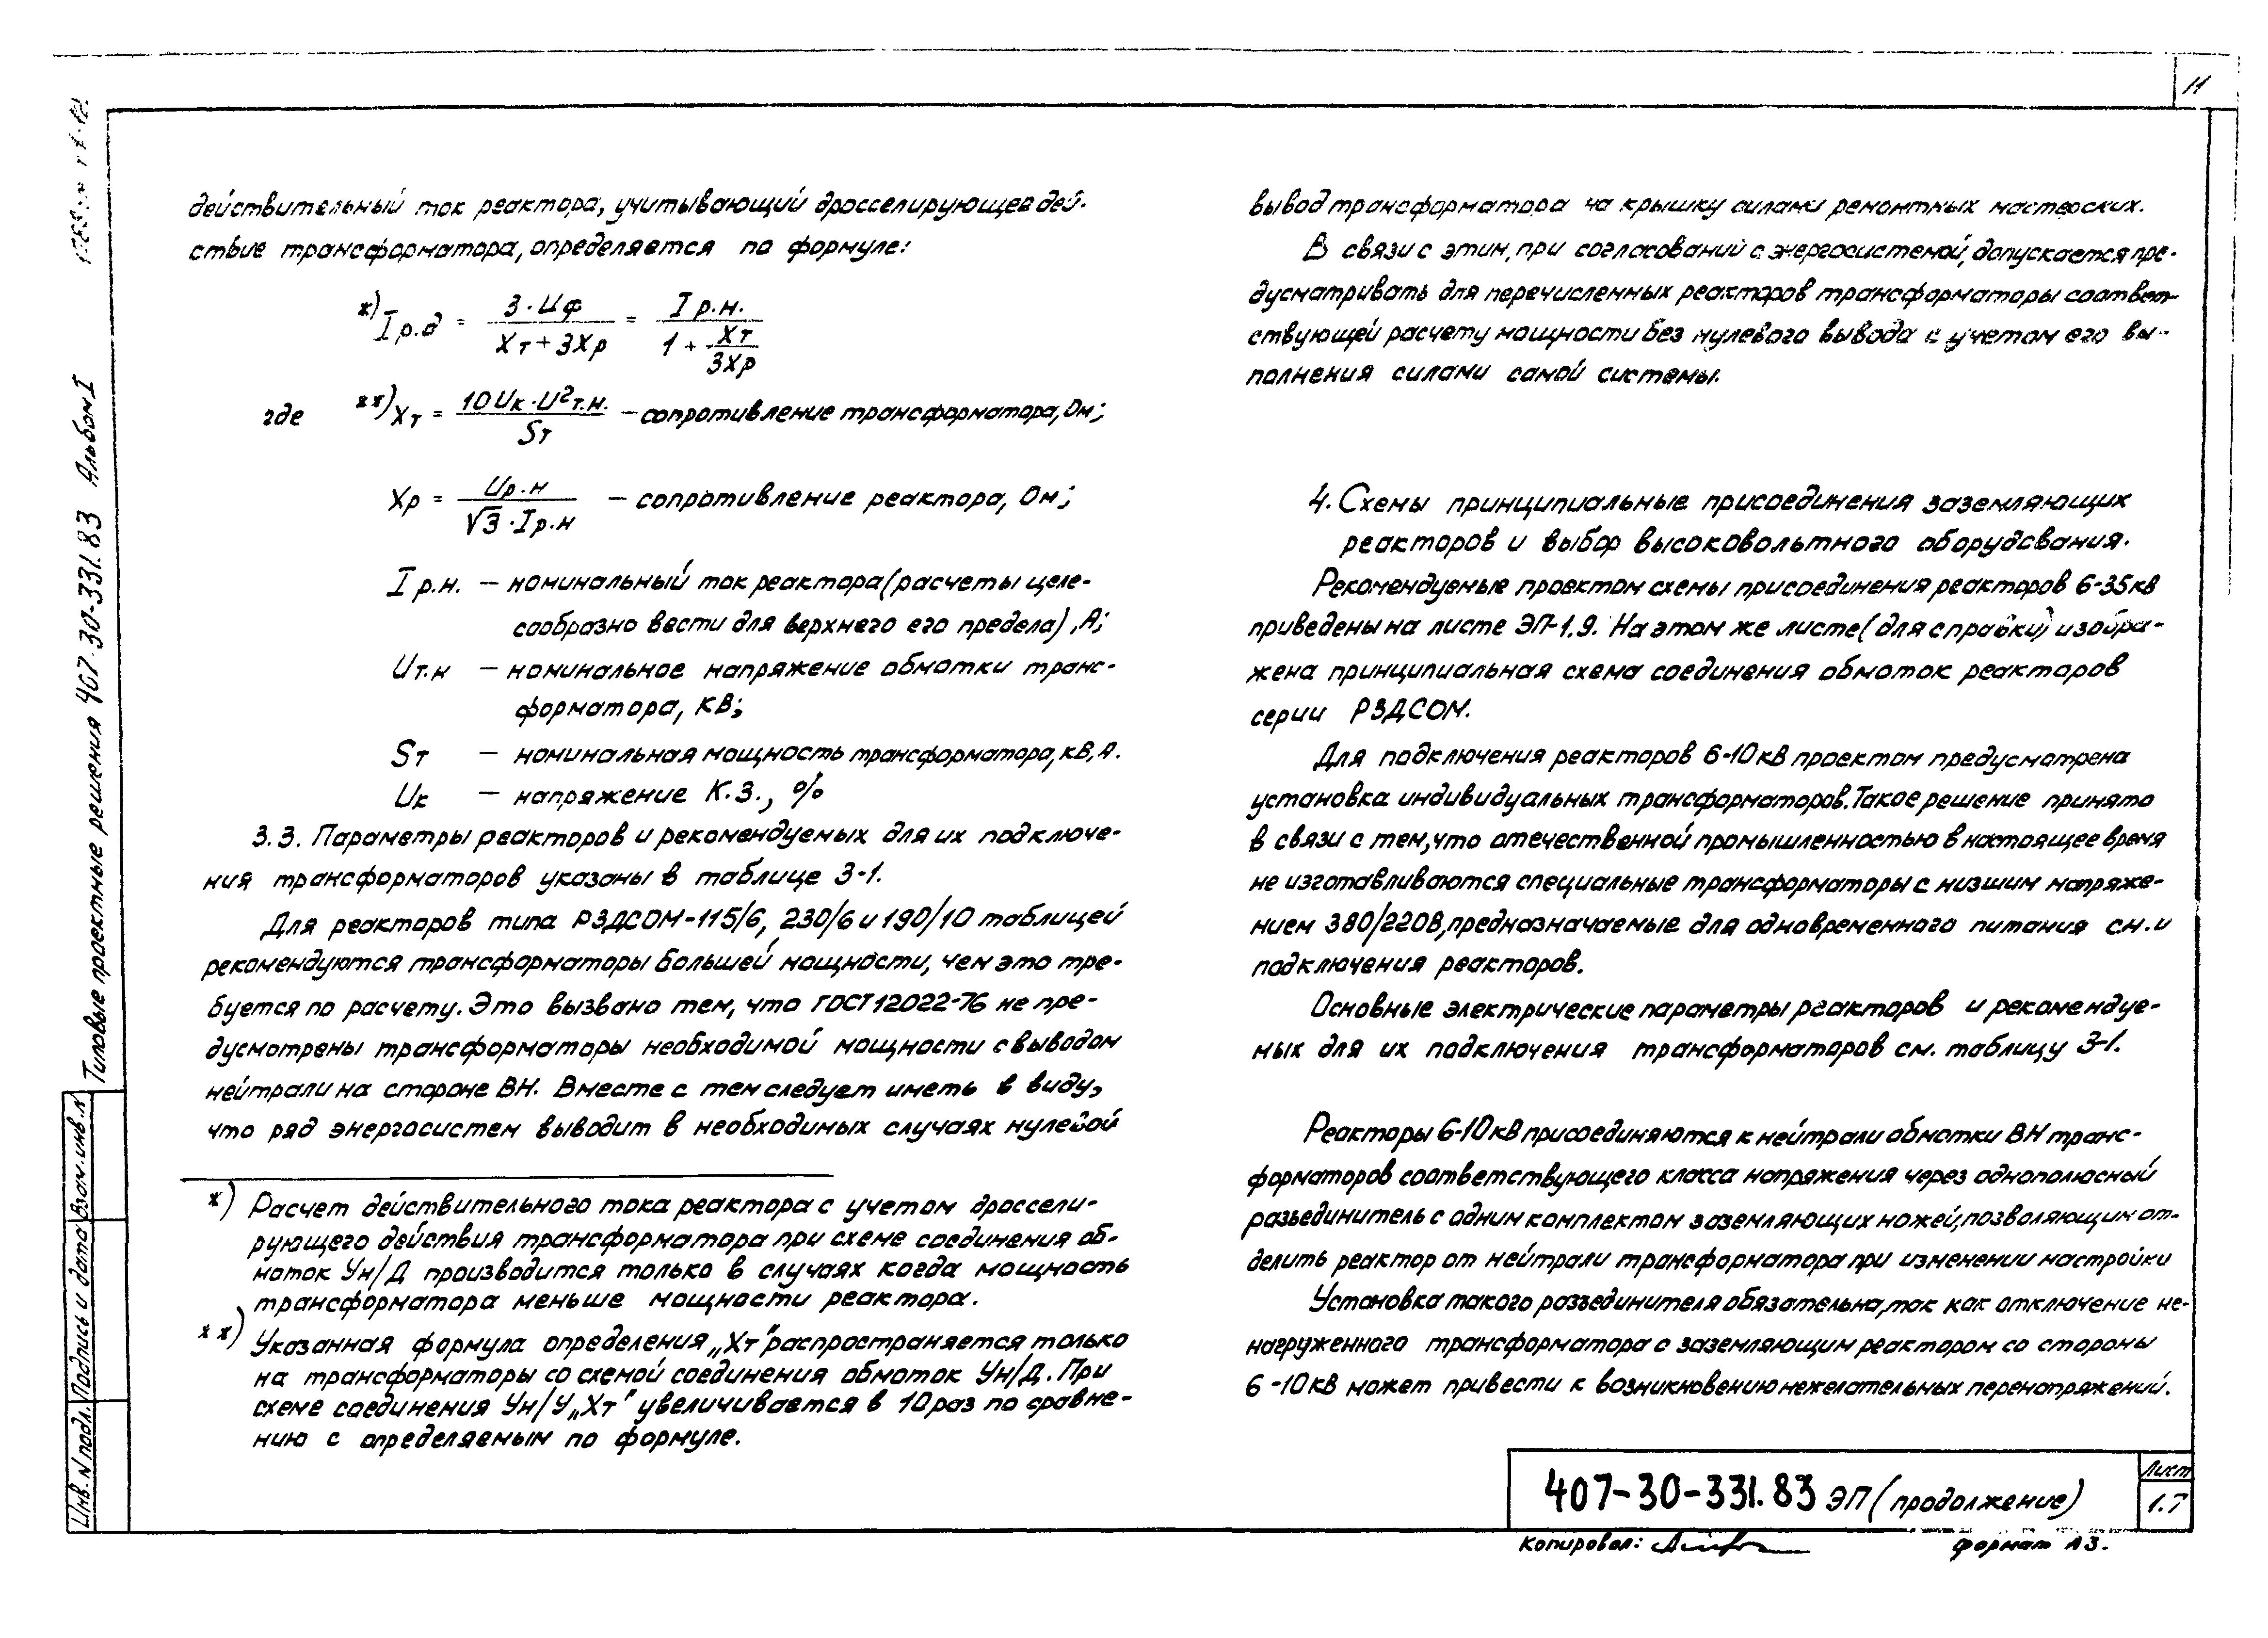 11
действительный ток реактора, учитывающий дросселирующее дей-
ствие трансформатора, определяется по формуле:
*) Iр.д = 3·Uф / (Xт + 3Xр) = Iр.н. / (1 + Xт / 3Xр)
где **) Xт = 10Uк·U²т.н. / Sт — сопротивление трансформатора, Ом;
Xр = Uр.н / (√3·Iр.н) — сопротивление реактора, Ом;
Iр.н. — номинальный ток реактора (расчеты целе-
сообразно вести для верхнего его предела), А;
Uт.н — номинальное напряжение обмотки транс-
форматора, КВ;
Sт — номинальная мощность трансформатора, кВ,А.
Uк — напряжение К.З., %
3.3. Параметры реакторов и рекомендуемых для их подключе-
ния трансформаторов указаны в таблице 3-1.
Для реакторов типа РЗДСОМ-115/6, 230/6 и 190/10 таблицей
рекомендуются трансформаторы большей мощности, чем это тре-
буется по расчету. Это вызвано тем, что ГОСТ 12022-76 не пре-
дусмотрены трансформаторы необходимой мощности с выводом
нейтрали на стороне ВН. Вместе с тем следует иметь в виду,
что ряд энергосистем выводит в необходимых случаях нулевой
*) Расчет действительного тока реактора с учетом дроссели-
рующего действия трансформатора при схеме соединения об-
моток Ун/Д производится только в случаях когда мощность
трансформатора меньше мощности реактора.
**) Указанная формула определения „Xт" распространяется только
на трансформаторы со схемой соединения обмоток Ун/Д. При
схеме соединения Ун/У „Xт" увеличивается в 10 раз по сравне-
нию с определяемым по формуле.
вывод трансформатора на крышку силами ремонтных мастерских.
В связи с этим, при согласований с энергосистемой, допускается пре-
дусматривать для перечисленных реакторов трансформаторы соответ-
ствующей расчету мощности без нулевого вывода с учетом его вы-
полнения силами самой системы.
4. Схемы принципиальные присоединения заземляющих
реакторов и выбор высоковольтного оборудования.
Рекомендуемые проектом схемы присоединения реакторов 6-35кВ
приведены на листе ЭП-1.9. На этом же листе (для справки) изобра-
жена принципиальная схема соединения обмоток реакторов
серии РЗДСОМ.
Для подключения реакторов 6-10кВ проектом предусмотрена
установка индивидуальных трансформаторов. Такое решение принято
в связи с тем, что отечественной промышленностью в настоящее время
не изготавливаются специальные трансформаторы с низшим напряже-
нием 380/220В, предназначаемые для одновременного питания с.н. и
подключения реакторов.
Основные электрические параметры реакторов и рекомендуе-
мых для их подключения трансформаторов см. таблицу 3-1.
Реакторы 6-10кВ присоединяются к нейтрали обмотки ВН транс-
форматоров соответствующего класса напряжения через однополюсный
разъединитель с одним комплектом заземляющих ножей, позволяющим от-
делить реактор от нейтрали трансформатора при изменении настройки
Установка такого разъединителя обязательна, так как отключение не-
нагруженного трансформатора с заземляющим реактором со стороны
6-10кВ может привести к возникновению нежелательных перенапряжений.
Типовые проектные решения 407-30-331.83 Альбом I
Взам.инв.№
Подпись и дата
Инв. N подл.
407-30-331.83 ЭП (продолжение)
Лист
1.7
Копировал:
формат А3.